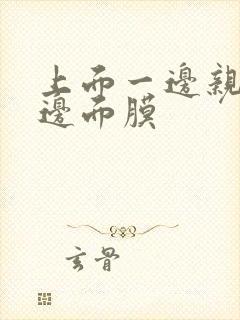 上而一邊親
邊而膜
玄骨